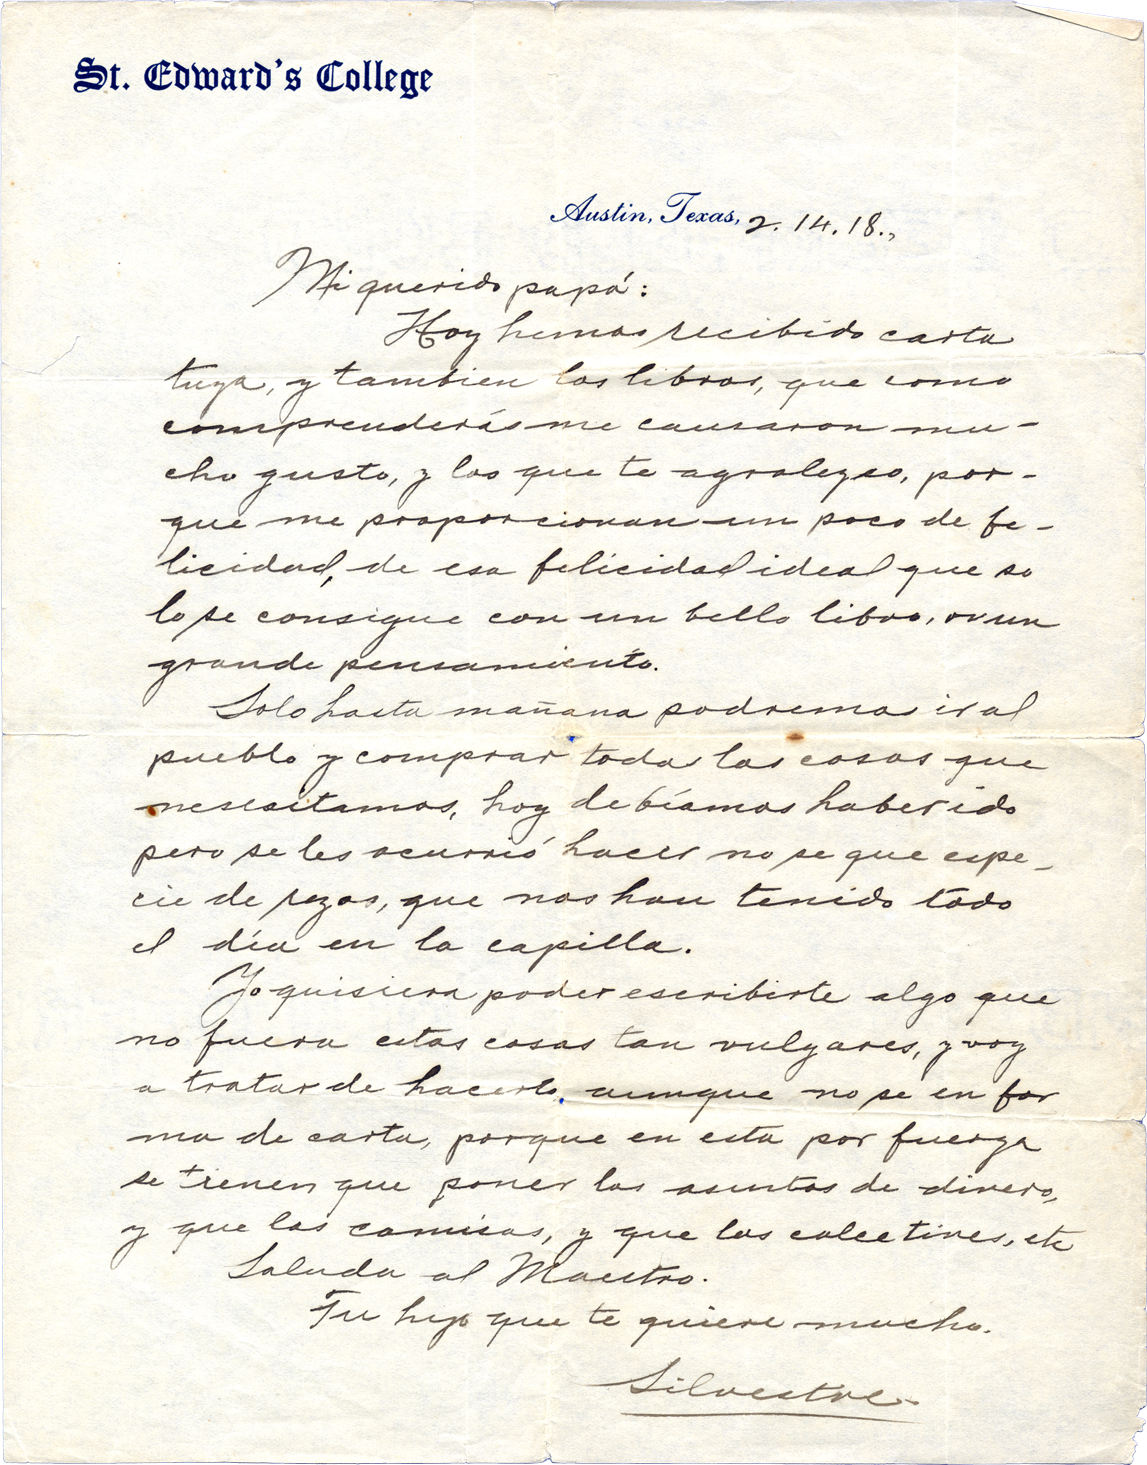 St. Edward's College
Austin, Texas, 2.14.18.,
Mi querido papá:
Hoy hemos recibido carta
tuya, y tambien los libros, que como
comprenderás me causaron mu-
cho gusto, y los que te agradezco, por-
que me proporcionan un poco de fe-
licidad, de esa felicidad ideal que so
lo se consigue con un bello libro, o un
grande pensamiento.
Solo hasta mañana podremos ir al
pueblo y comprar todas las cosas que
nesesitamos, hoy debíamos haber ido
pero se les ocurrió hacer no se que espe-
cie de rezos, que nos han tenido todo
el día en la capilla.
Yo quisiera poder escribirte algo que
no fuera estas cosas tan vulgares, y voy
a tratar de hacerlo, aunque no se en for
ma de carta, porque en esta por fuerza
se tienen que poner los asuntos de dinero,
y que las camisas, y que los calcetines, etc
Saluda al Maestro.
Tu hijo que te quiere mucho.
Silvestre